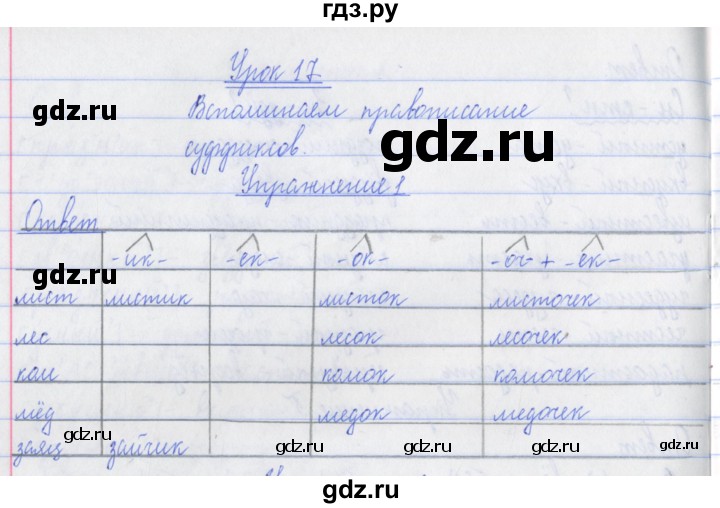 гдз.ру
Урок 17
gdz.ru
Вспоминаем правописание
gdz.ru
суффиксов.
Упражнение 1
Ответ
-ик- -ек- -ок- -оч- + -ек-
gdz.ru
лист листик листок листочек
лес лесок лесочек
ком комок комочек
мёд медок медочек
заяц зайчик
gdz.ru gdz.ru gdz.ru gdz.ru gdz.ru
gdz.ru